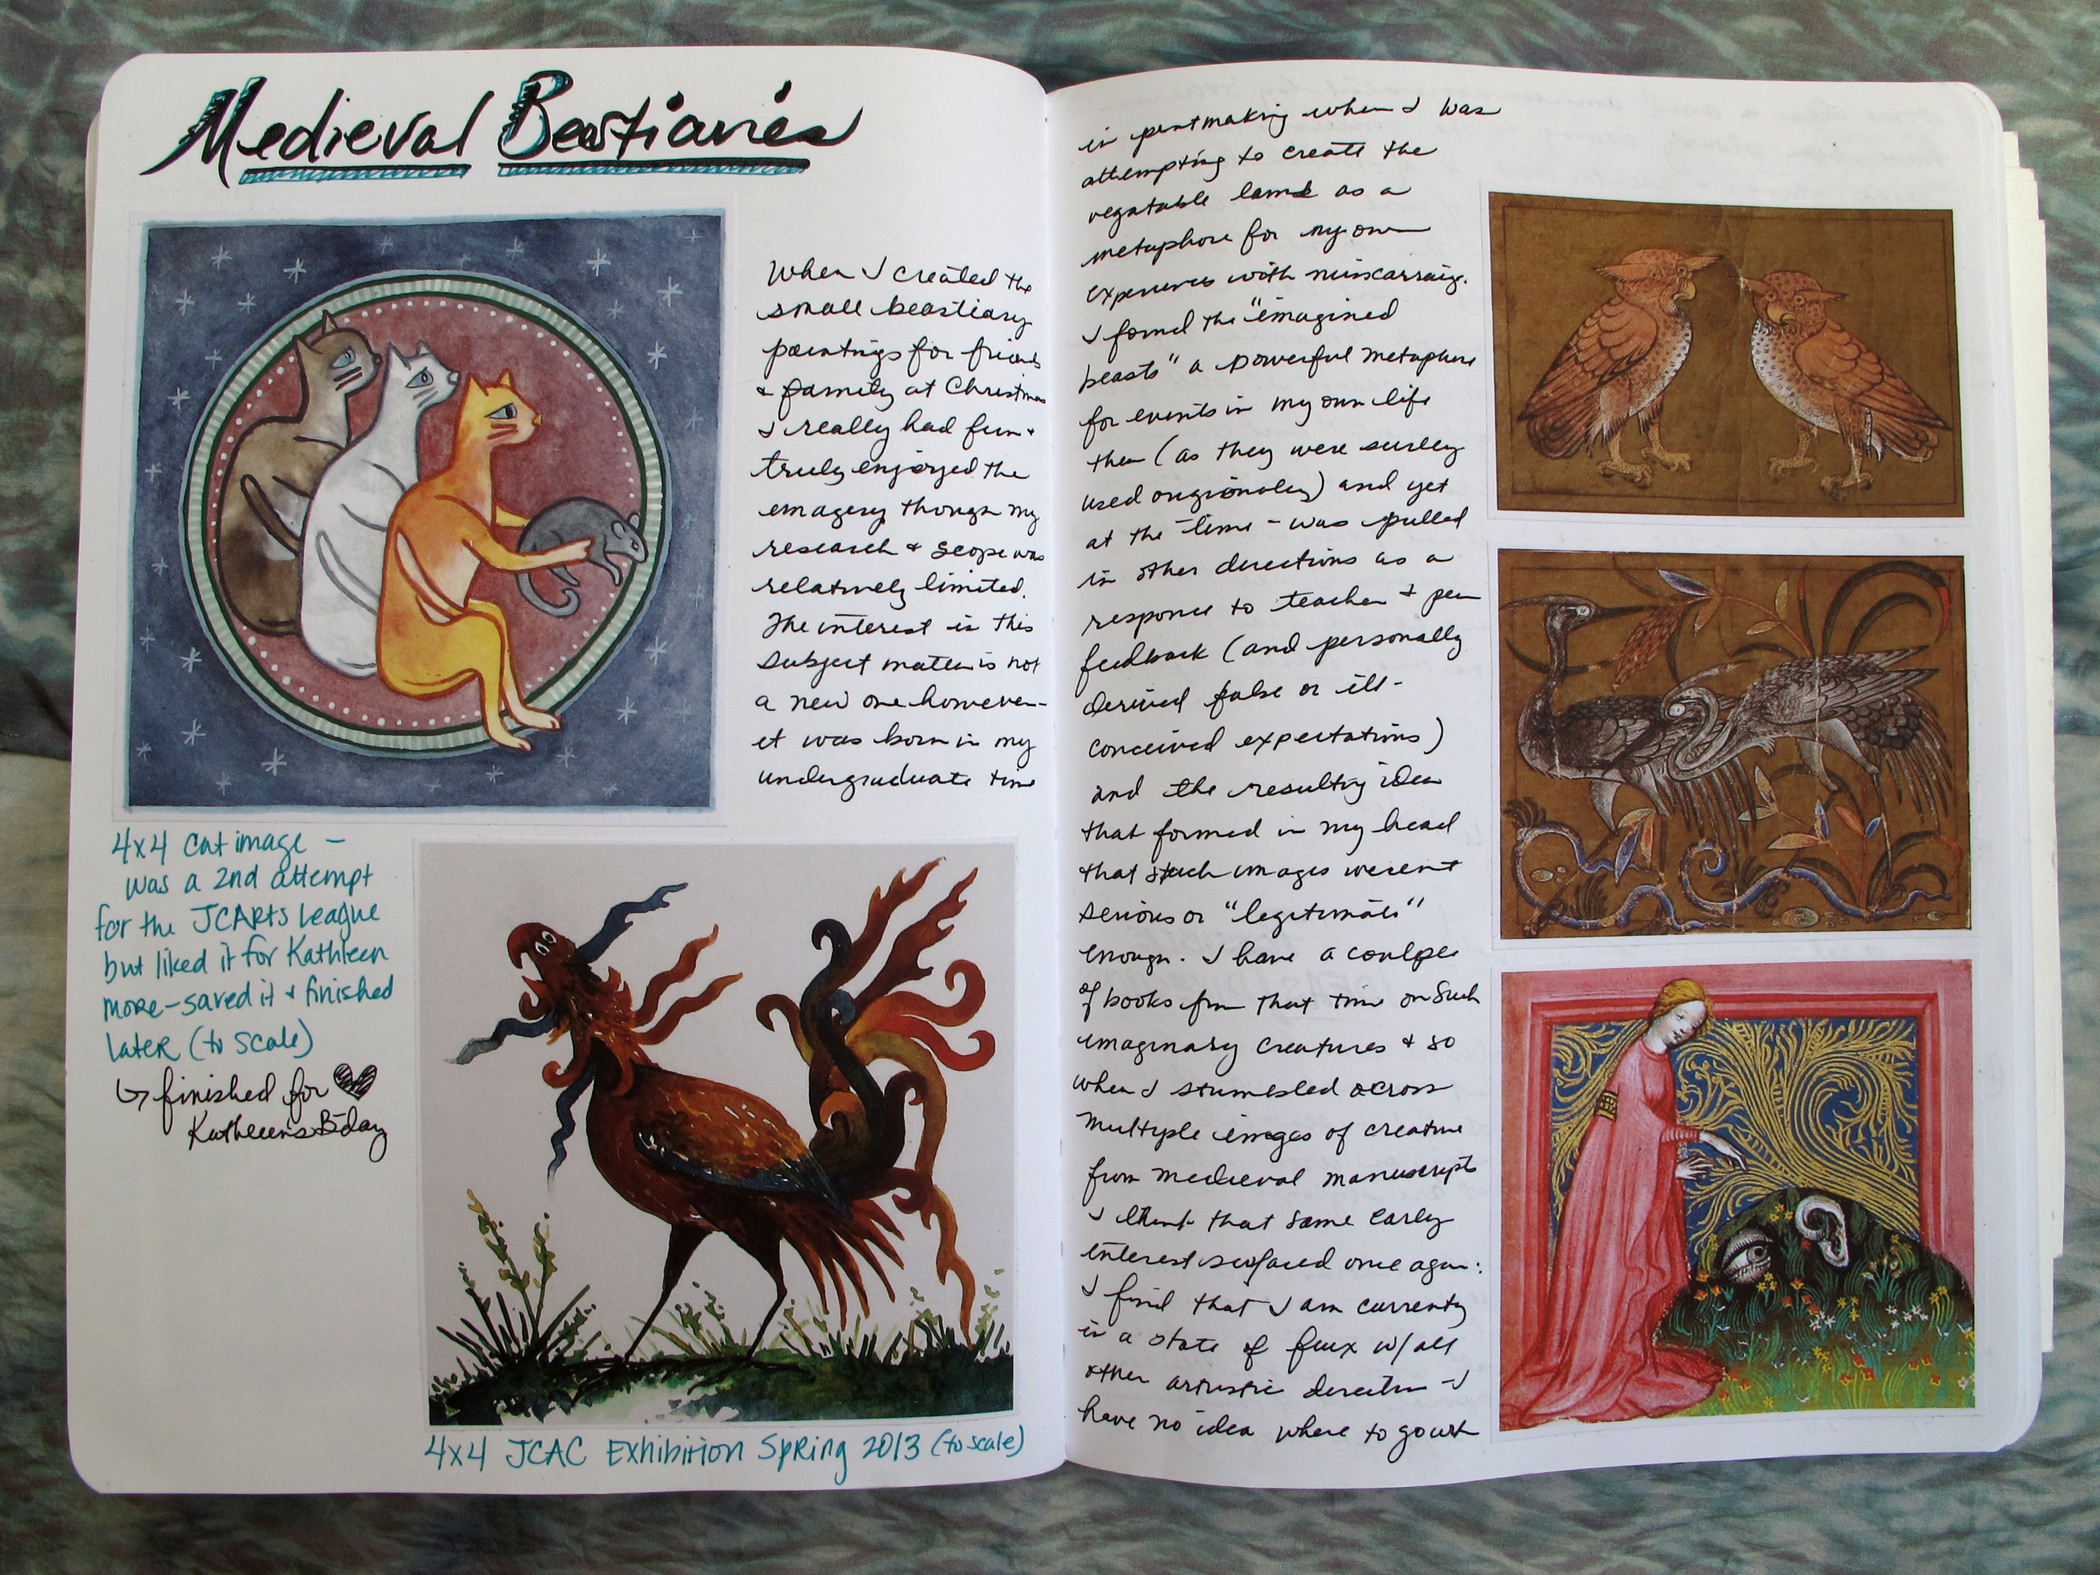 Medieval Beastiaries
When I created the
small beastiary
paintings for friends
& family at Christmas
I really had fun &
truly enjoyed the
imagery though my
research & scope was
relatively limited.
The interest in this
subject matter is not
a new one however -
it was born in my
undergraduate time
4x4 cat image -
was a 2nd attempt
for the JCARTS League
but liked it for Kathleen
more - saved it & finished
later (to scale)
↳ finished for ♥
Kathleen's B-day
4x4 JCAC Exhibition Spring 2013 (to scale)
in printmaking when I was
attempting to create the
vegatable lamb as a
metaphore for my own
experiences with misscarraige.
I found the "imagined
beasts" a powerful metaphore
for events in my own life
then (as they were surley
used origionaley) and yet
at the time - was pulled
in other directions as a
response to teacher & peer
feedback (and personally
derived false or ill-
conceived expectations)
and the resulting idea
that formed in my head
that such images weren't
serious or "legitimate"
enough. I have a coulpe
of books from that time on such
imaginary creatures & so
when I stumbled across
multiple images of creature
from medieval manuscripts
I think that same early
interest surfaced once again:
I find that I am currently
in a state of flux w/all
other artistic direction - I
have no idea where to go with